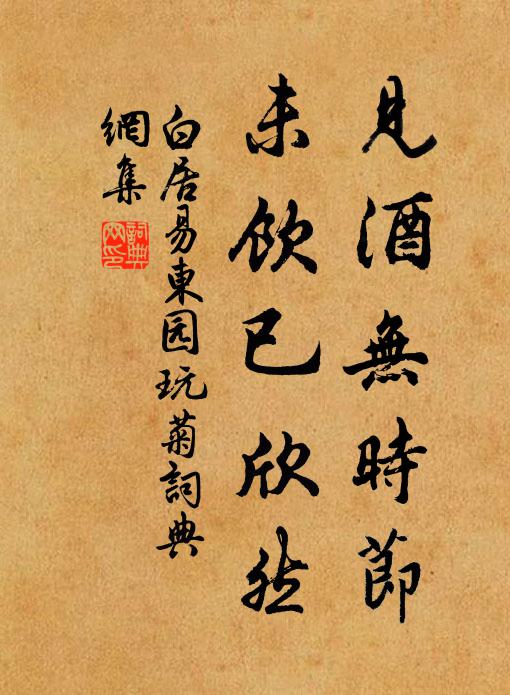 見酒無時節
未飲已欣然
白居易東园玩菊詞典
網集
詞典网印